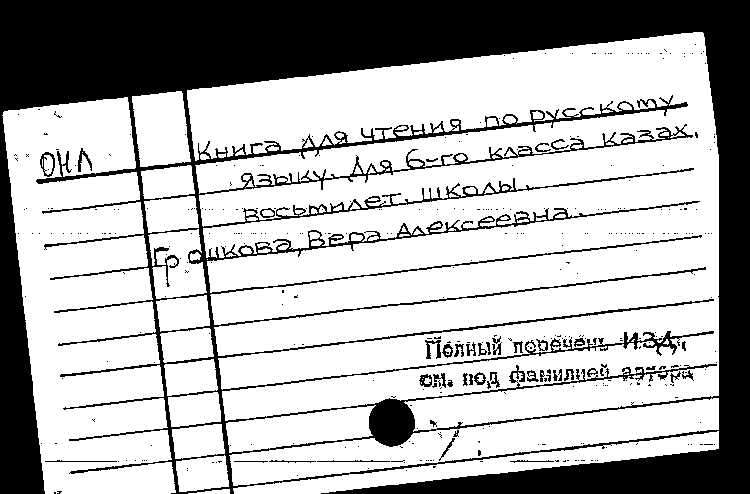 ОНЛ
Книга для чтения по русскому
языку. Для 6-го класса казах.
восьмилет. школы.
Грошкова, Вера Алексеевна.
Полный перечень изд.
см. под фамилией автора